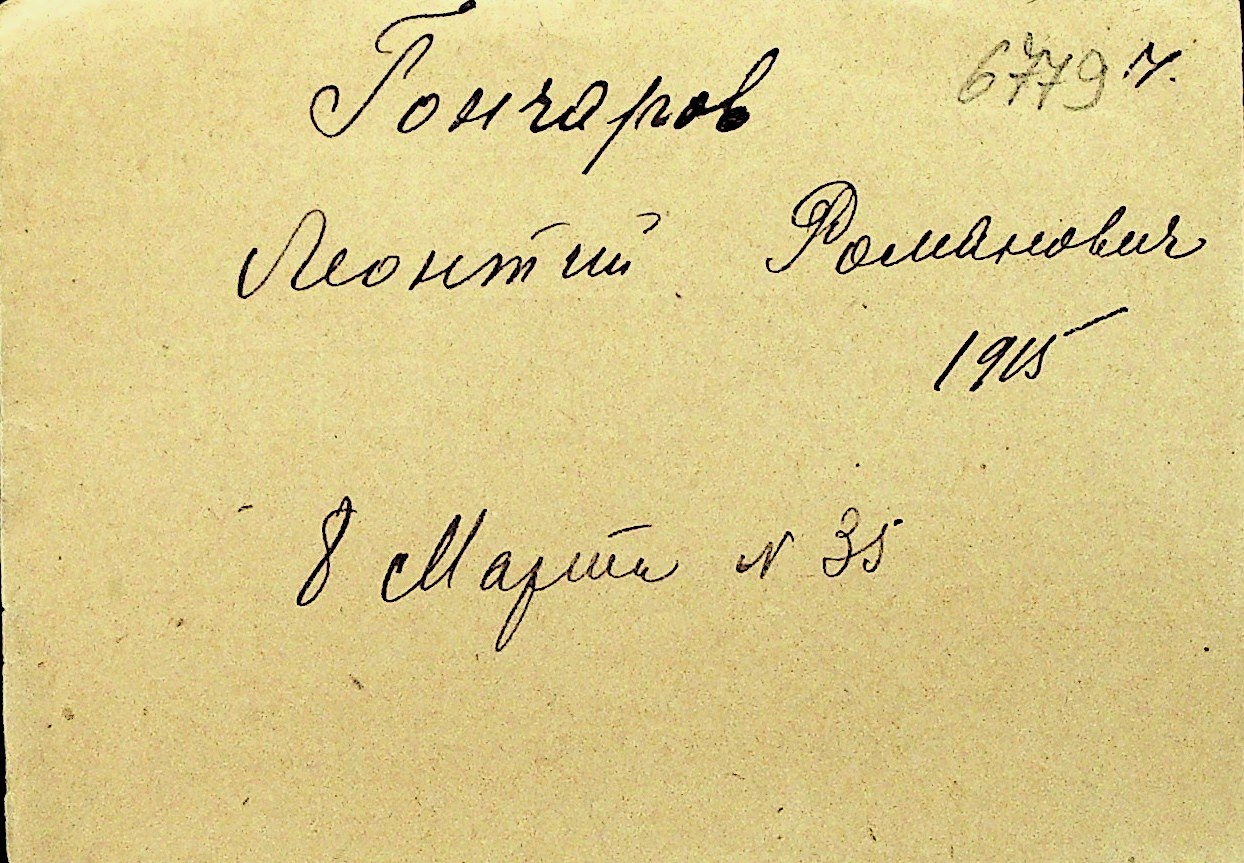 6779 ч.
Гончаров
Леонтий Романович
1915
8 Марта N 35